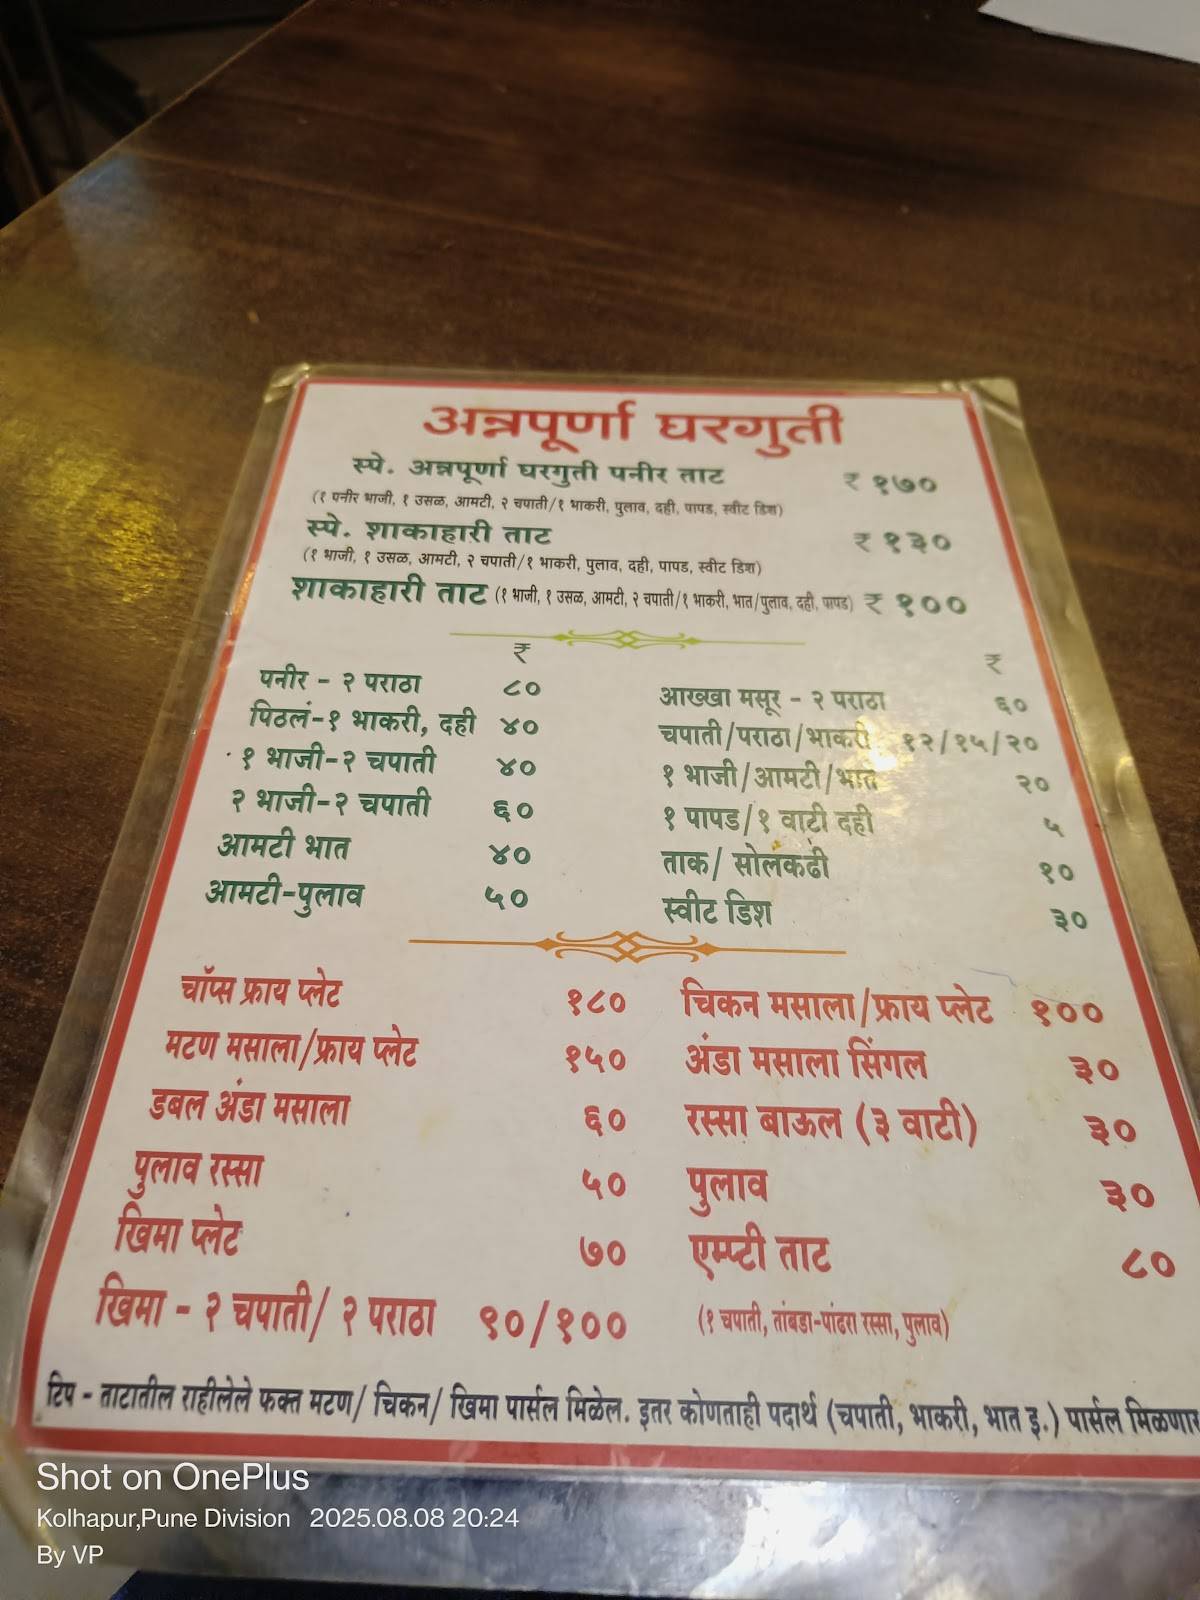 अन्नपूर्णा घरगुती
स्पे. अन्नपूर्णा घरगुती पनीर ताट ₹ १७०
(१ पनीर भाजी, १ उसळ, आमटी, २ चपाती/१ भाकरी, पुलाव, दही, पापड, स्वीट डिश)
स्पे. शाकाहारी ताट ₹ १३०
(१ भाजी, १ उसळ, आमटी, २ चपाती/१ भाकरी, पुलाव, दही, पापड, स्वीट डिश)
शाकाहारी ताट (१ भाजी, १ उसळ, आमटी, २ चपाती/१ भाकरी, भात/पुलाव, दही, पापड) ₹ १००
₹
पनीर - २ पराठा ८०
पिठलं-१ भाकरी, दही ४०
१ भाजी-२ चपाती ४०
२ भाजी-२ चपाती ६०
आमटी भात ४०
आमटी-पुलाव ५०
₹
आख्खा मसूर - २ पराठा ६०
चपाती/पराठा/भाकरी १२/१५/२०
१ भाजी/आमटी/भात २०
१ पापड/१ वाटी दही ५
ताक/ सोलकढी १०
स्वीट डिश ३०
चॉप्स फ्राय प्लेट १८०
मटण मसाला/फ्राय प्लेट १५०
डबल अंडा मसाला ६०
पुलाव रस्सा ५०
खिमा प्लेट ७०
खिमा - २ चपाती/ २ पराठा ९०/१००
चिकन मसाला/फ्राय प्लेट १००
अंडा मसाला सिंगल ३०
रस्सा बाऊल (३ वाटी) ३०
पुलाव ३०
एम्प्टी ताट ८०
(१ चपाती, तांबडा-पांढरा रस्सा, पुलाव)
टिप - ताटातील राहीलेले फक्त मटण/ चिकन/ खिमा पार्सल मिळेल. इतर कोणताही पदार्थ (चपाती, भाकरी, भात इ.) पार्सल मिळणार
Shot on OnePlus
Kolhapur,Pune Division 2025.08.08 20:24
By VP